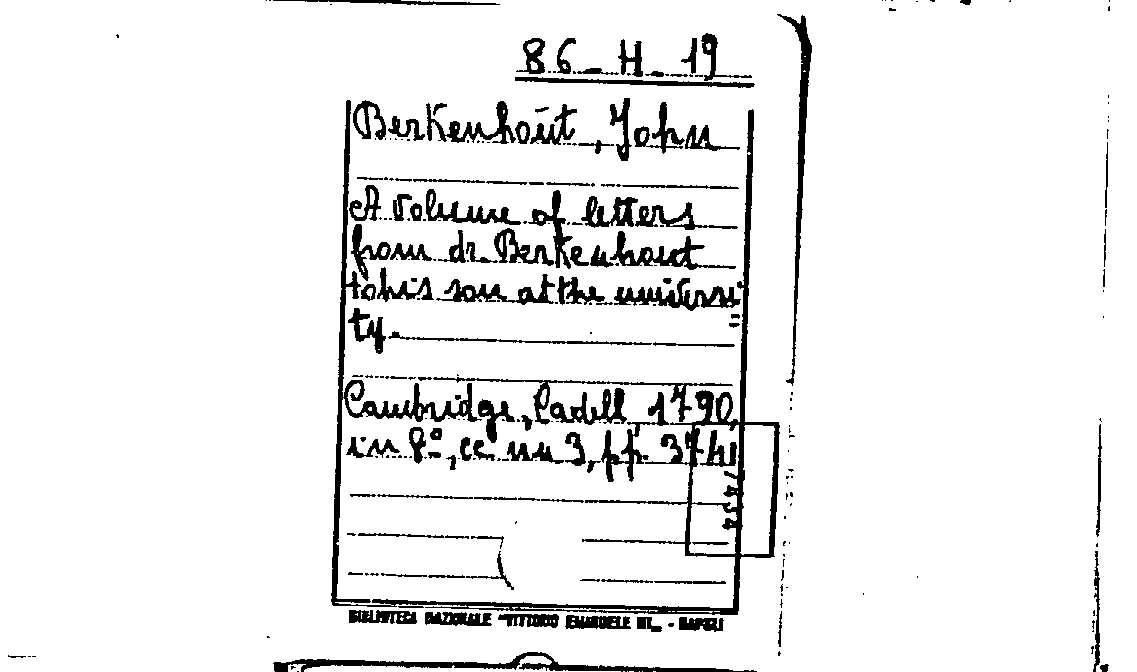 86-H-19
Berkenhout, John
A volume of letters
from dr. Berkenhout
to his son at the universi
ty.
Cambridge, Cadell, 1790,
in 8º, cc nn 3, pp. 374
BIBLIOTECA NAZIONALE "VITTORIO EMANUELE III" - NAPOLI